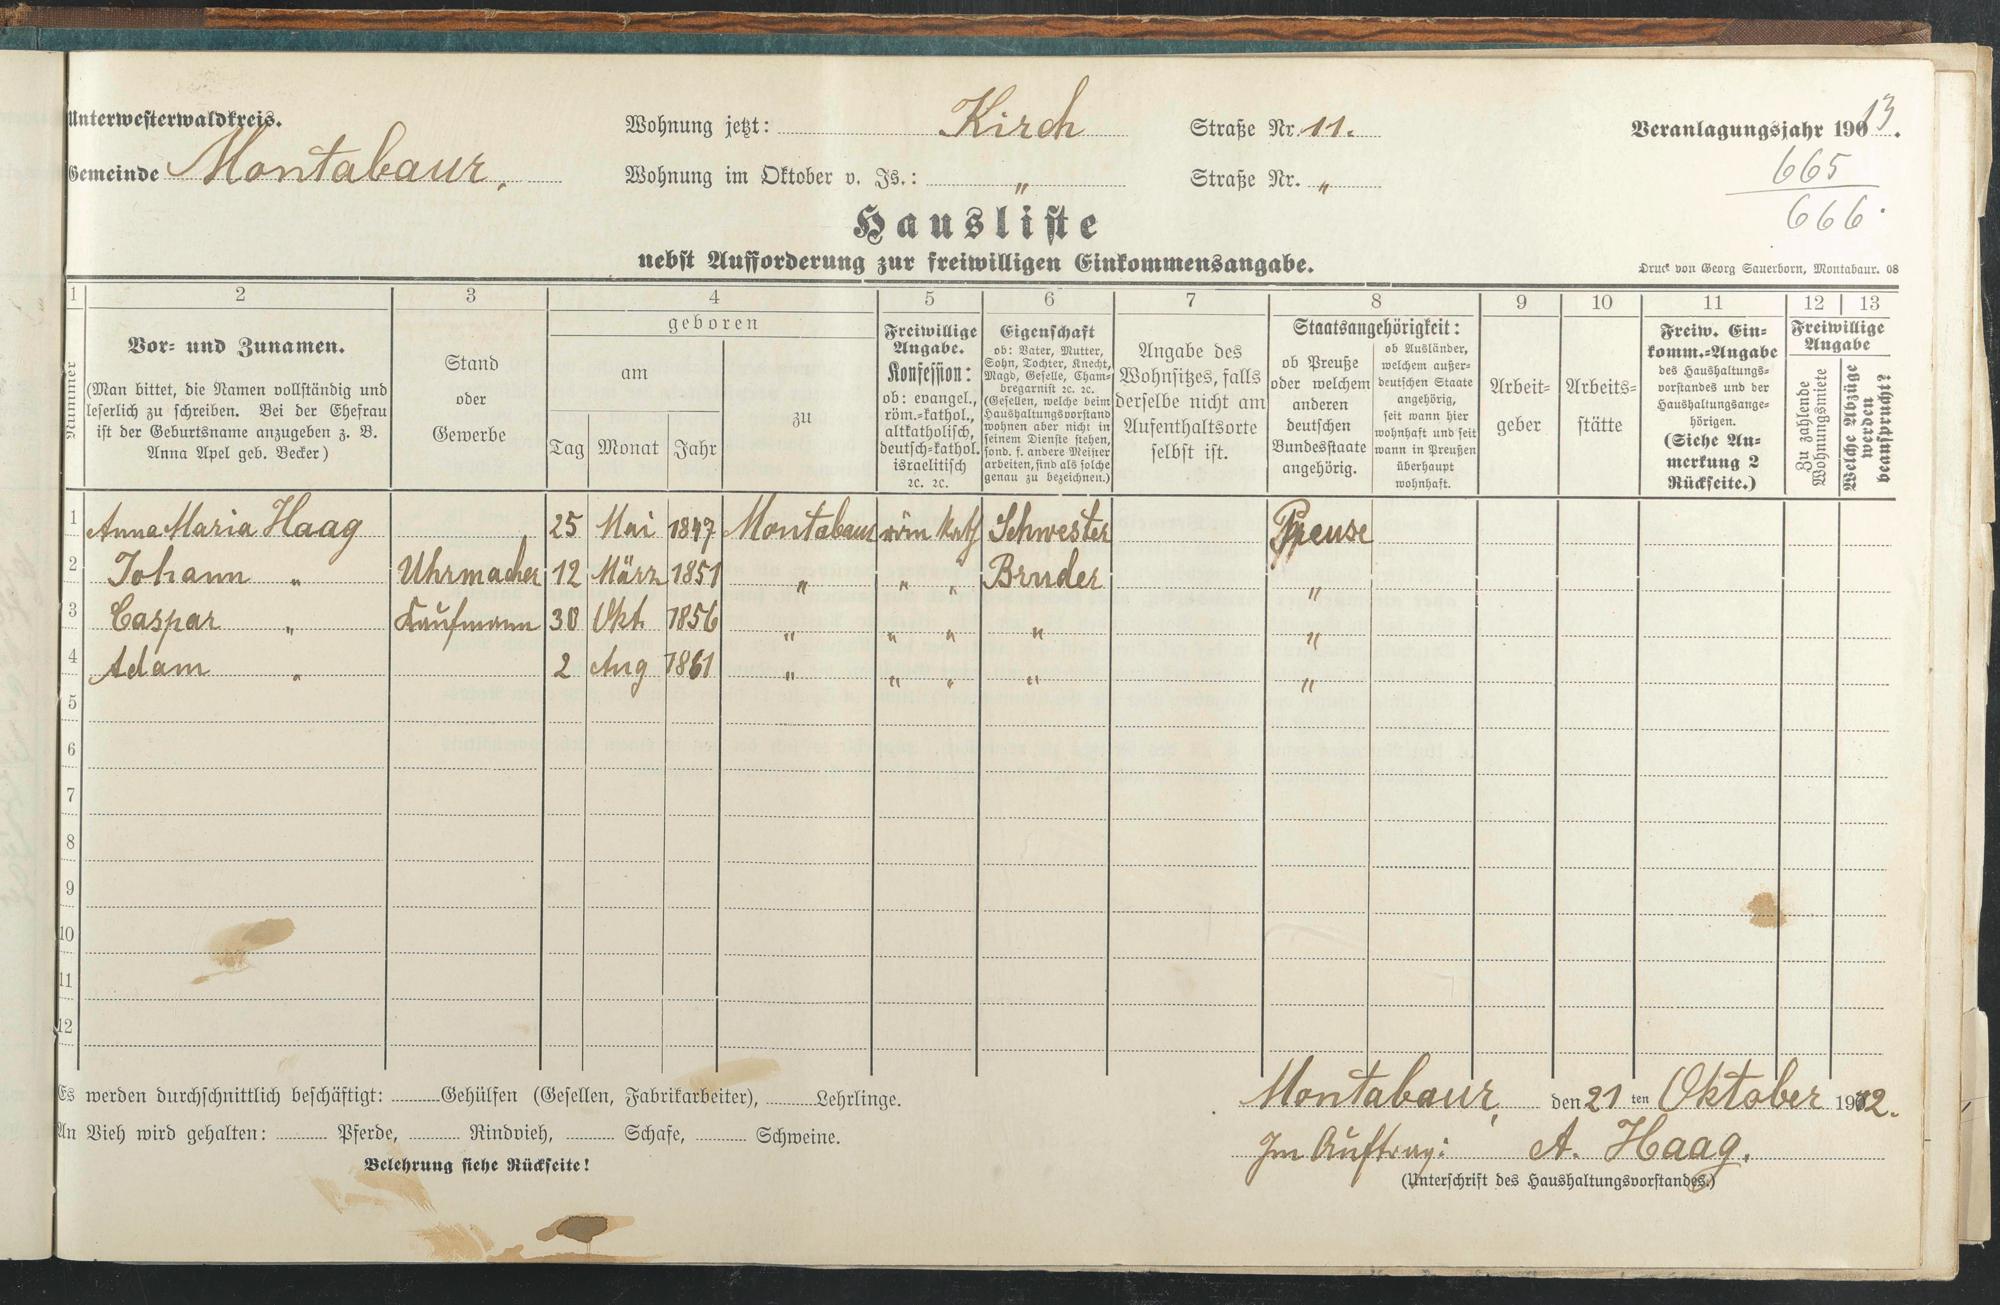 Unterwesterwaldkreis.
Wohnung jetzt: Kirch Straße Nr. 11.
Veranlagungsjahr 1913.
Gemeinde Montabaur.
Wohnung im Oktober v. Js.: " Straße Nr. "
665
666.
Hausliste
nebst Aufforderung zur freiwilligen Einkommensangabe.
Druck von Georg Sauerborn, Montabaur. 08
1 2 3 4 5 6 7 8 9 10 11 12 13
Nummer
Vor- und Zunamen.
(Man bittet, die Namen vollständig und
leserlich zu schreiben. Bei der Ehefrau
ist der Geburtsname anzugeben z. B.
Anna Apel geb. Becker)
Stand
oder
Gewerbe
geboren
am
Tag Monat Jahr
zu
Freiwillige
Angabe.
Konfession:
ob: evangel.,
röm.-kathol.,
altkatholisch,
deutsch-kathol.
israelitisch
ꝛc. ꝛc.
Eigenschaft
ob: Vater, Mutter,
Sohn, Tochter, Knecht,
Magd, Geselle, Cham-
bregarnist ꝛc. ꝛc.
(Gesellen, welche beim
Haushaltungsvorstand
wohnen aber nicht in
seinem Dienste stehen,
sond. f. andere Meister
arbeiten, sind als solche
genau zu bezeichnen.)
Angabe des
Wohnsitzes, falls
derselbe nicht am
Aufenthaltsorte
selbst ist.
Staatsangehörigkeit:
ob Preuße
oder welchem
anderen
deutschen
Bundesstaate
angehörig.
ob Ausländer,
welchem außer-
deutschen Staate
angehörig,
seit wann hier
wohnhaft und seit
wann in Preußen
überhaupt
wohnhaft.
Arbeit-
geber
Arbeits-
stätte
Freiw. Ein-
komm.-Angabe
des Haushaltungs-
vorstandes und der
Haushaltungsange-
hörigen.
(Siehe An-
merkung 2
Rückseite.)
Freiwillige
Angabe
Zu zahlende
Wohnungsmiete
Welche Abzüge
werden
beansprucht?
1 Anna Maria Haag 25 Mai 1847 Montabaur röm kath Schwester Preuse
2 Johann " Uhrmacher 12 März 1851 " " " Bruder "
3 Caspar " Kaufmann 30 Okt. 1856 " " " " "
4 Adam " 2 Aug 1861 " " " " "
5
6
7
8
9
10
11
12
Es werden durchschnittlich beschäftigt: Gehülfen (Gesellen, Fabrikarbeiter), Lehrlinge.
Montabaur, den 21 ten Oktober 1912.
An Vieh wird gehalten: Pferde, Rindvieh, Schafe, Schweine.
Im Auftrag: A. Haag.
Belehrung siehe Rückseite!
(Unterschrift des Haushaltungsvorstandes.)